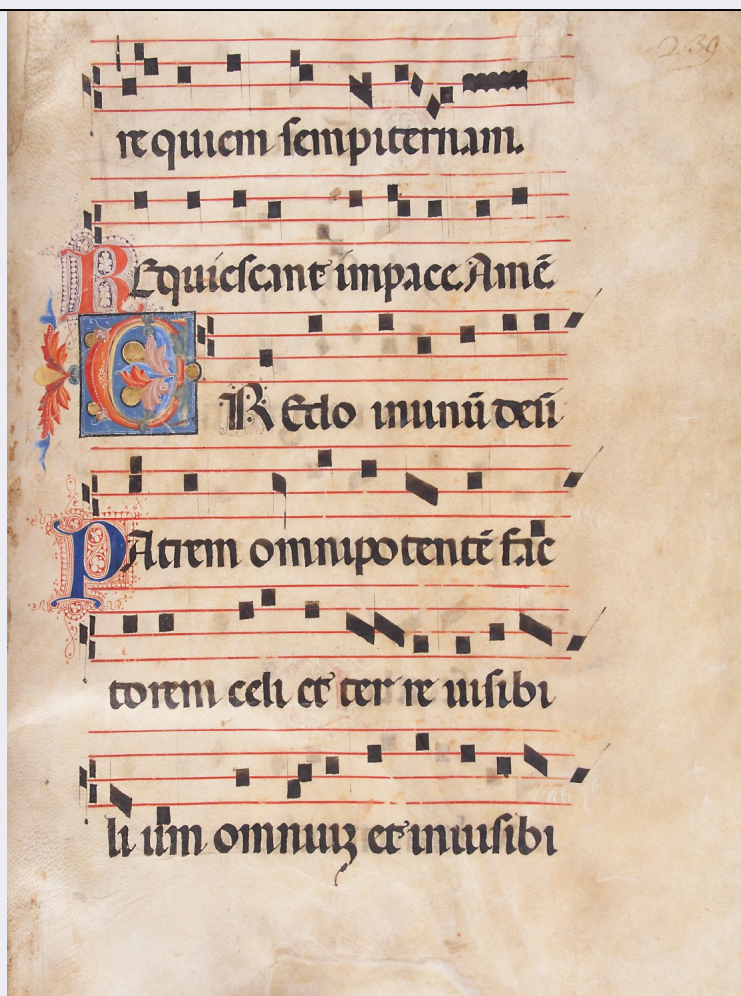 239
re quiem sempiternam.
REquiescant impace. Amē
CREdo inunū deū
PAtrem omnipotentē fac
torem celi et ter re uisibi
li um omniuꝫ et inuisibi